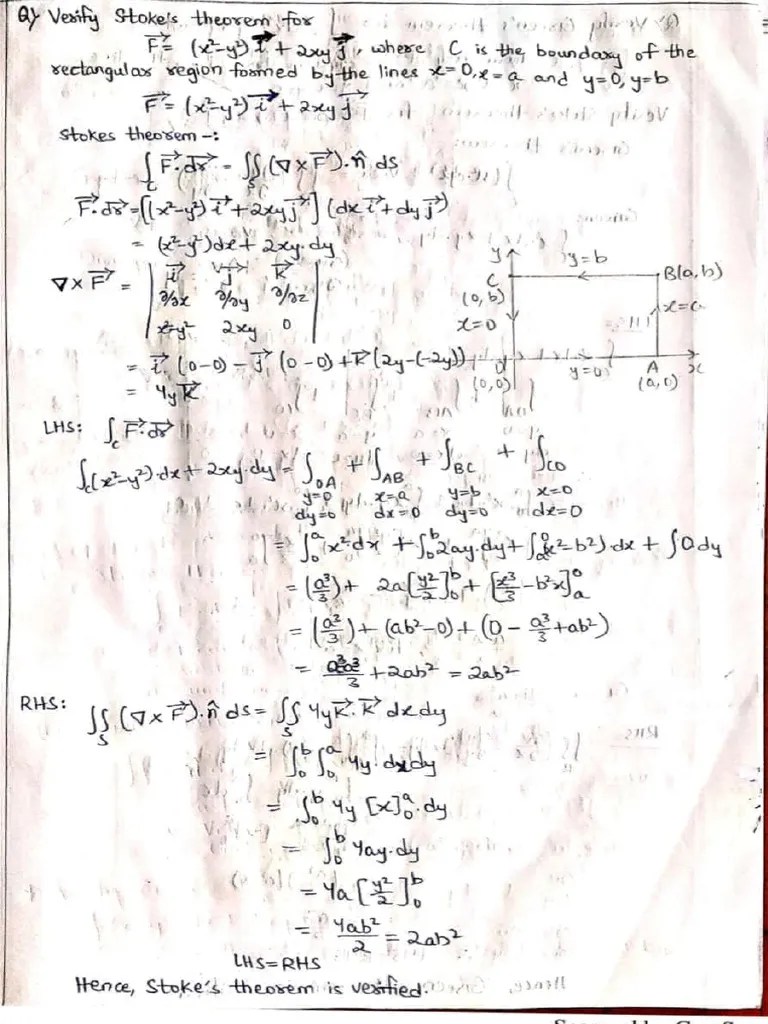 Q) Verify Stoke's theorem for
F⃗ = (x²-y²) i⃗ + 2xy j⃗, where C is the boundary of the
rectangular region formed by the lines x=0, x=a and y=0, y=b
F⃗ = (x²-y²) i⃗ + 2xy j⃗
Stokes theorem -:
∫_C F⃗.dr⃗ = ∬_S (∇×F⃗).n̂ ds
F⃗.dr⃗ = [(x²-y²) i⃗ + 2xy j⃗] (dx i⃗ + dy j⃗)
= (x²-y²)dx + 2xy.dy
∇×F⃗ = | i⃗ j⃗ k⃗ |
| ∂/∂x ∂/∂y ∂/∂z |
| x²-y² 2xy 0 |
= i⃗ (0-0) - j⃗ (0-0) + k⃗ (2y-(-2y))
= 4y k⃗
y
y=b
C
(0,b)
B(a,b)
x=0
x=a
O
(0,0)
y=0
A
(a,0)
x
LHS: ∫_C F⃗.dr⃗
∫_C (x²-y²).dx + 2xy.dy = ∫_OA + ∫_AB + ∫_BC + ∫_CO
y=0 x=a y=b x=0
dy=0 dx=0 dy=0 dx=0
= ∫₀^a x².dx + ∫₀^b 2ay.dy + ∫_a^0 (x²-b²).dx + ∫0 dy
= (a³/3) + 2a[y²/2]₀^b + [x³/3 - b²x]_a^0
= (a³/3) + (ab²-0) + (0 - a³/3 + ab²)
+ 2ab² = 2ab²
RHS: ∬_S (∇×F⃗).n̂ ds = ∬_S 4y k⃗.k⃗ dx dy
= ∫₀^b ∫₀^a 4y.dx dy
= ∫₀^b 4y [x]₀^a.dy
= ∫₀^b 4ay.dy
= 4a [y²/2]₀^b
= 4ab²/2 = 2ab²
LHS=RHS
Hence, Stoke's theorem is verified.